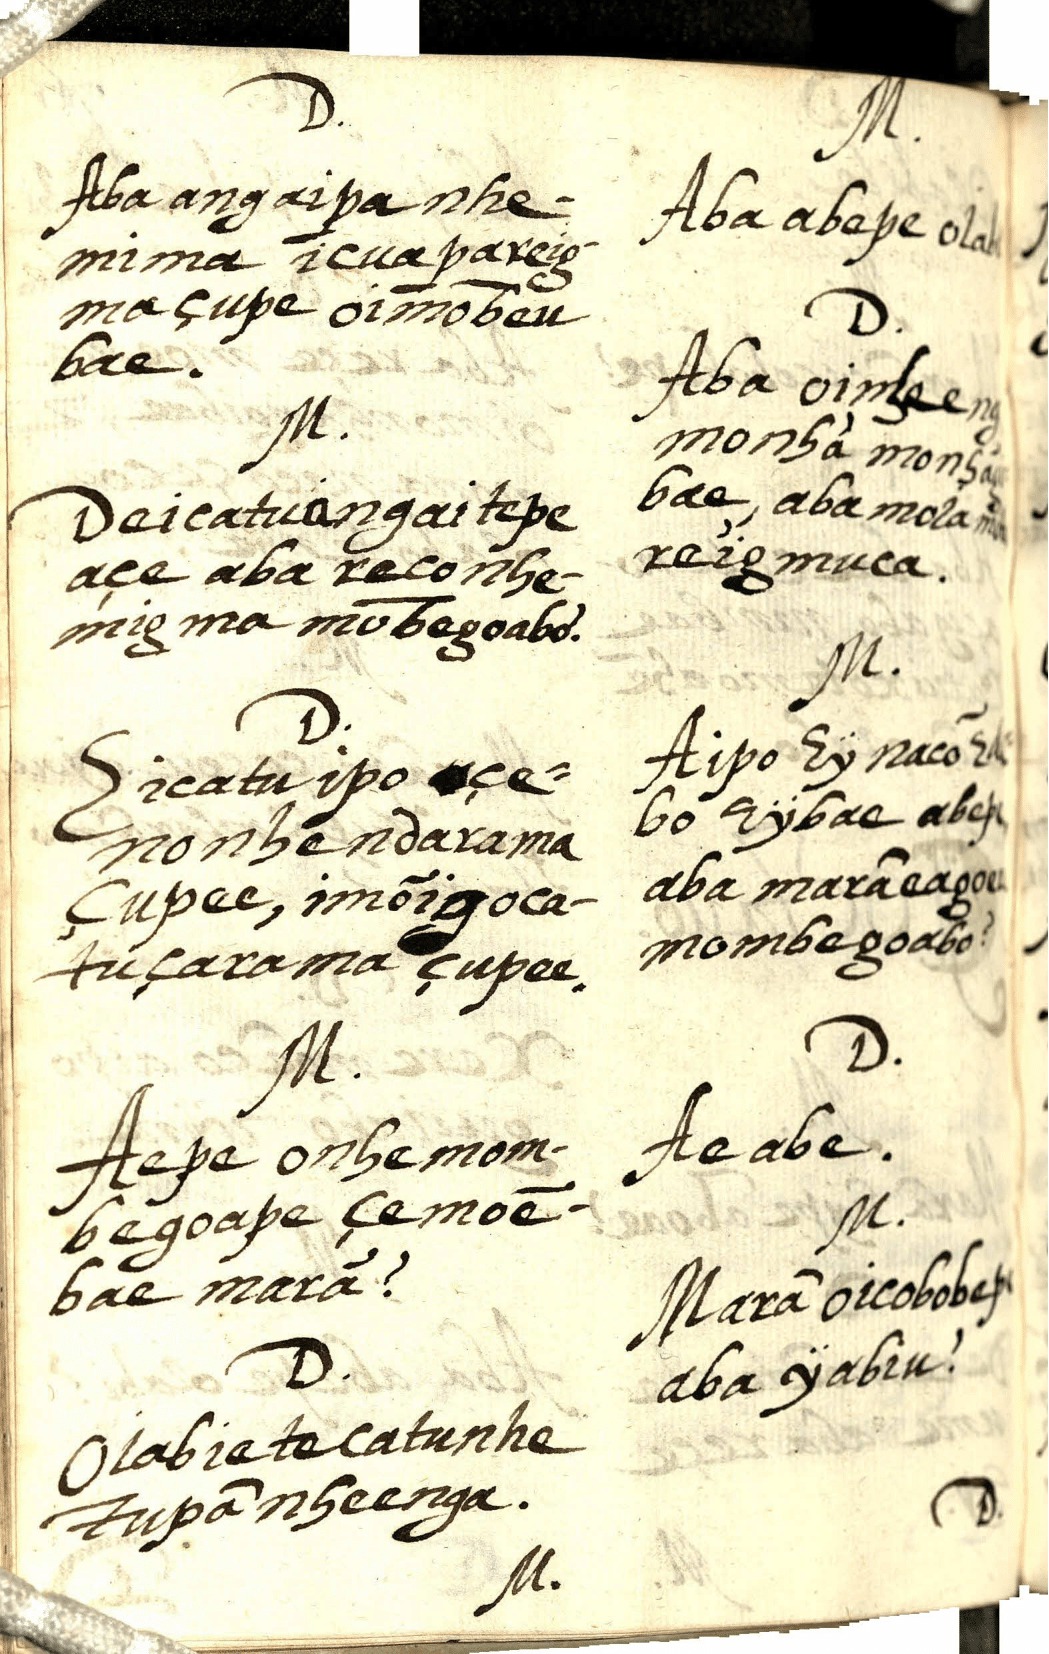 D.
Aba angaipa nhe-
mima ĩcuapareig-
ma çupe oim̄ob̄eu
bae.
M.
Deicatuangaitepe
açe aba reconhe-
mig ma mōbegoabo?
D.
Eicatu ipo açe-
nonhendarama
Çupee, imõigoca-
tuçarama çupee.
M.
Aepe onhemom-
begoape çemoē-
bae marã?
D.
Olabietecatunhe
tupã nheenga.
M.
M.
Aba abepe
D.
Aba
monhà
bae, aba
reïgmuca.
M.
Aipo Eÿ nacõ
bo Eÿbae
aba marã
mombegoabo?
D.
Ae abe.
M.
Marã
aba ÿabiu?
D.